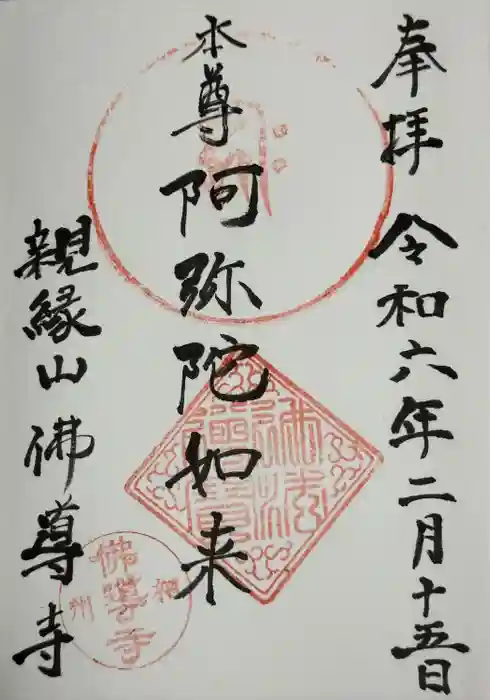 奉拝 令和六年二月十五日
本尊 阿弥陀如来
親縁山 佛導寺
佛導寺
相州